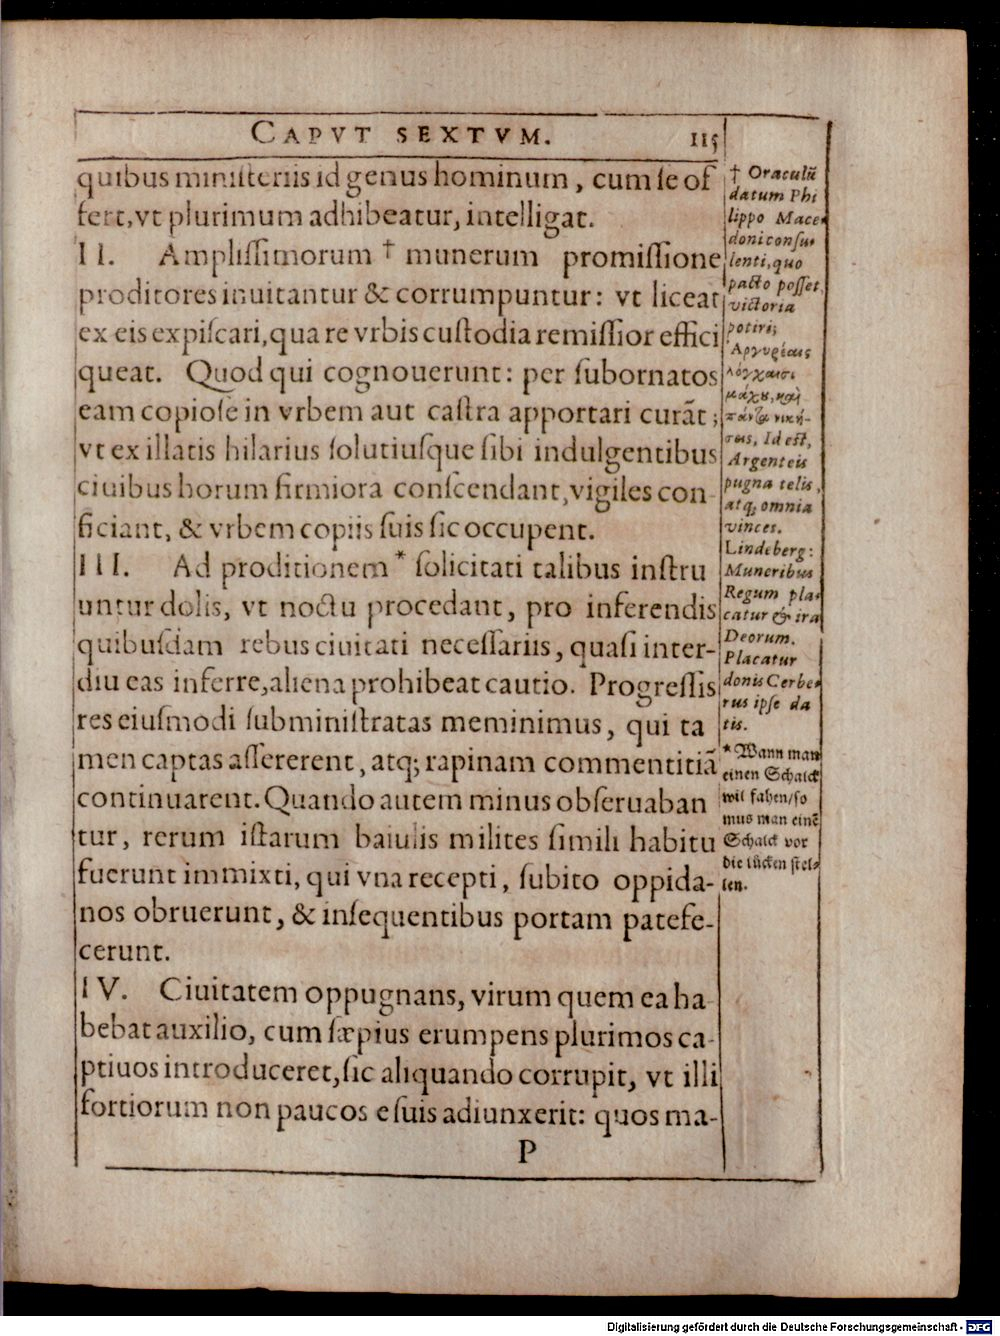 CAPVT SEXTVM. 115
quibus miniſteriis id genus hominum, cum ſe of
fert, vt plurimum adhibeatur, intelligat.
II. Ampliſſimorum † munerum promiſſione
proditores inuitantur & corrumpuntur: vt liceat
ex eis expiſcari, qua re vrbis cuſtodia remiſſior effici
queat. Quod qui cognouerunt: per ſubornatos
eam copioſe in vrbem aut caſtra apportari curāt;
vt ex illatis hilarius ſolutiuſque ſibi indulgentibus
ciuibus horum firmiora conſcendant, vigiles con-
ficiant, & vrbem copiis ſuis ſic occupent.
III. Ad proditionem * ſolicitati talibus inſtru
untur dolis, vt noctu procedant, pro inferendis
quibuſdam rebus ciuitati neceſſariis, quaſi inter-
diu eas inferre, aliena prohibeat cautio. Progreſſis
res eiuſmodi ſubminiſtratas meminimus, qui ta
men captas aſſererent, atq; rapinam commentitiā
continuarent. Quando autem minus obſeruaban
tur, rerum iſtarum baiulis milites ſimili habitu
fuerunt immixti, qui vna recepti, ſubito oppida-
nos obruerunt, & inſequentibus portam patefe-
cerunt.
IV. Ciuitatem oppugnans, virum quem ea ha
bebat auxilio, cum ſæpius erumpens plurimos ca-
ptiuos introduceret, ſic aliquando corrupit, vt illi
fortiorum non paucos e ſuis adiunxerit: quos ma-
P
† Oraculū
datum Phi
lippo Mace-
doni conſu-
lenti, quo
pacto poſſet
victoria
potiri;
Ἀργυρέαις
λόγχαισι
μάχου, καὶ
πάντα νική-
σεις, Id eſt,
Argenteis
pugna telis,
atq; omnia
vinces.
Lindeberg:
Muneribus
Regum pla-
catur & ira
Deorum.
Placatur
donis Cerbe-
rus ipſe da
tis.
* Wann man
einen Schalck
wil fahen/ſo
mus man einē
Schalck vor
die lücken ſtel-
len.
Digitalisierung gefördert durch die Deutsche Forschungsgemeinschaft - DFG